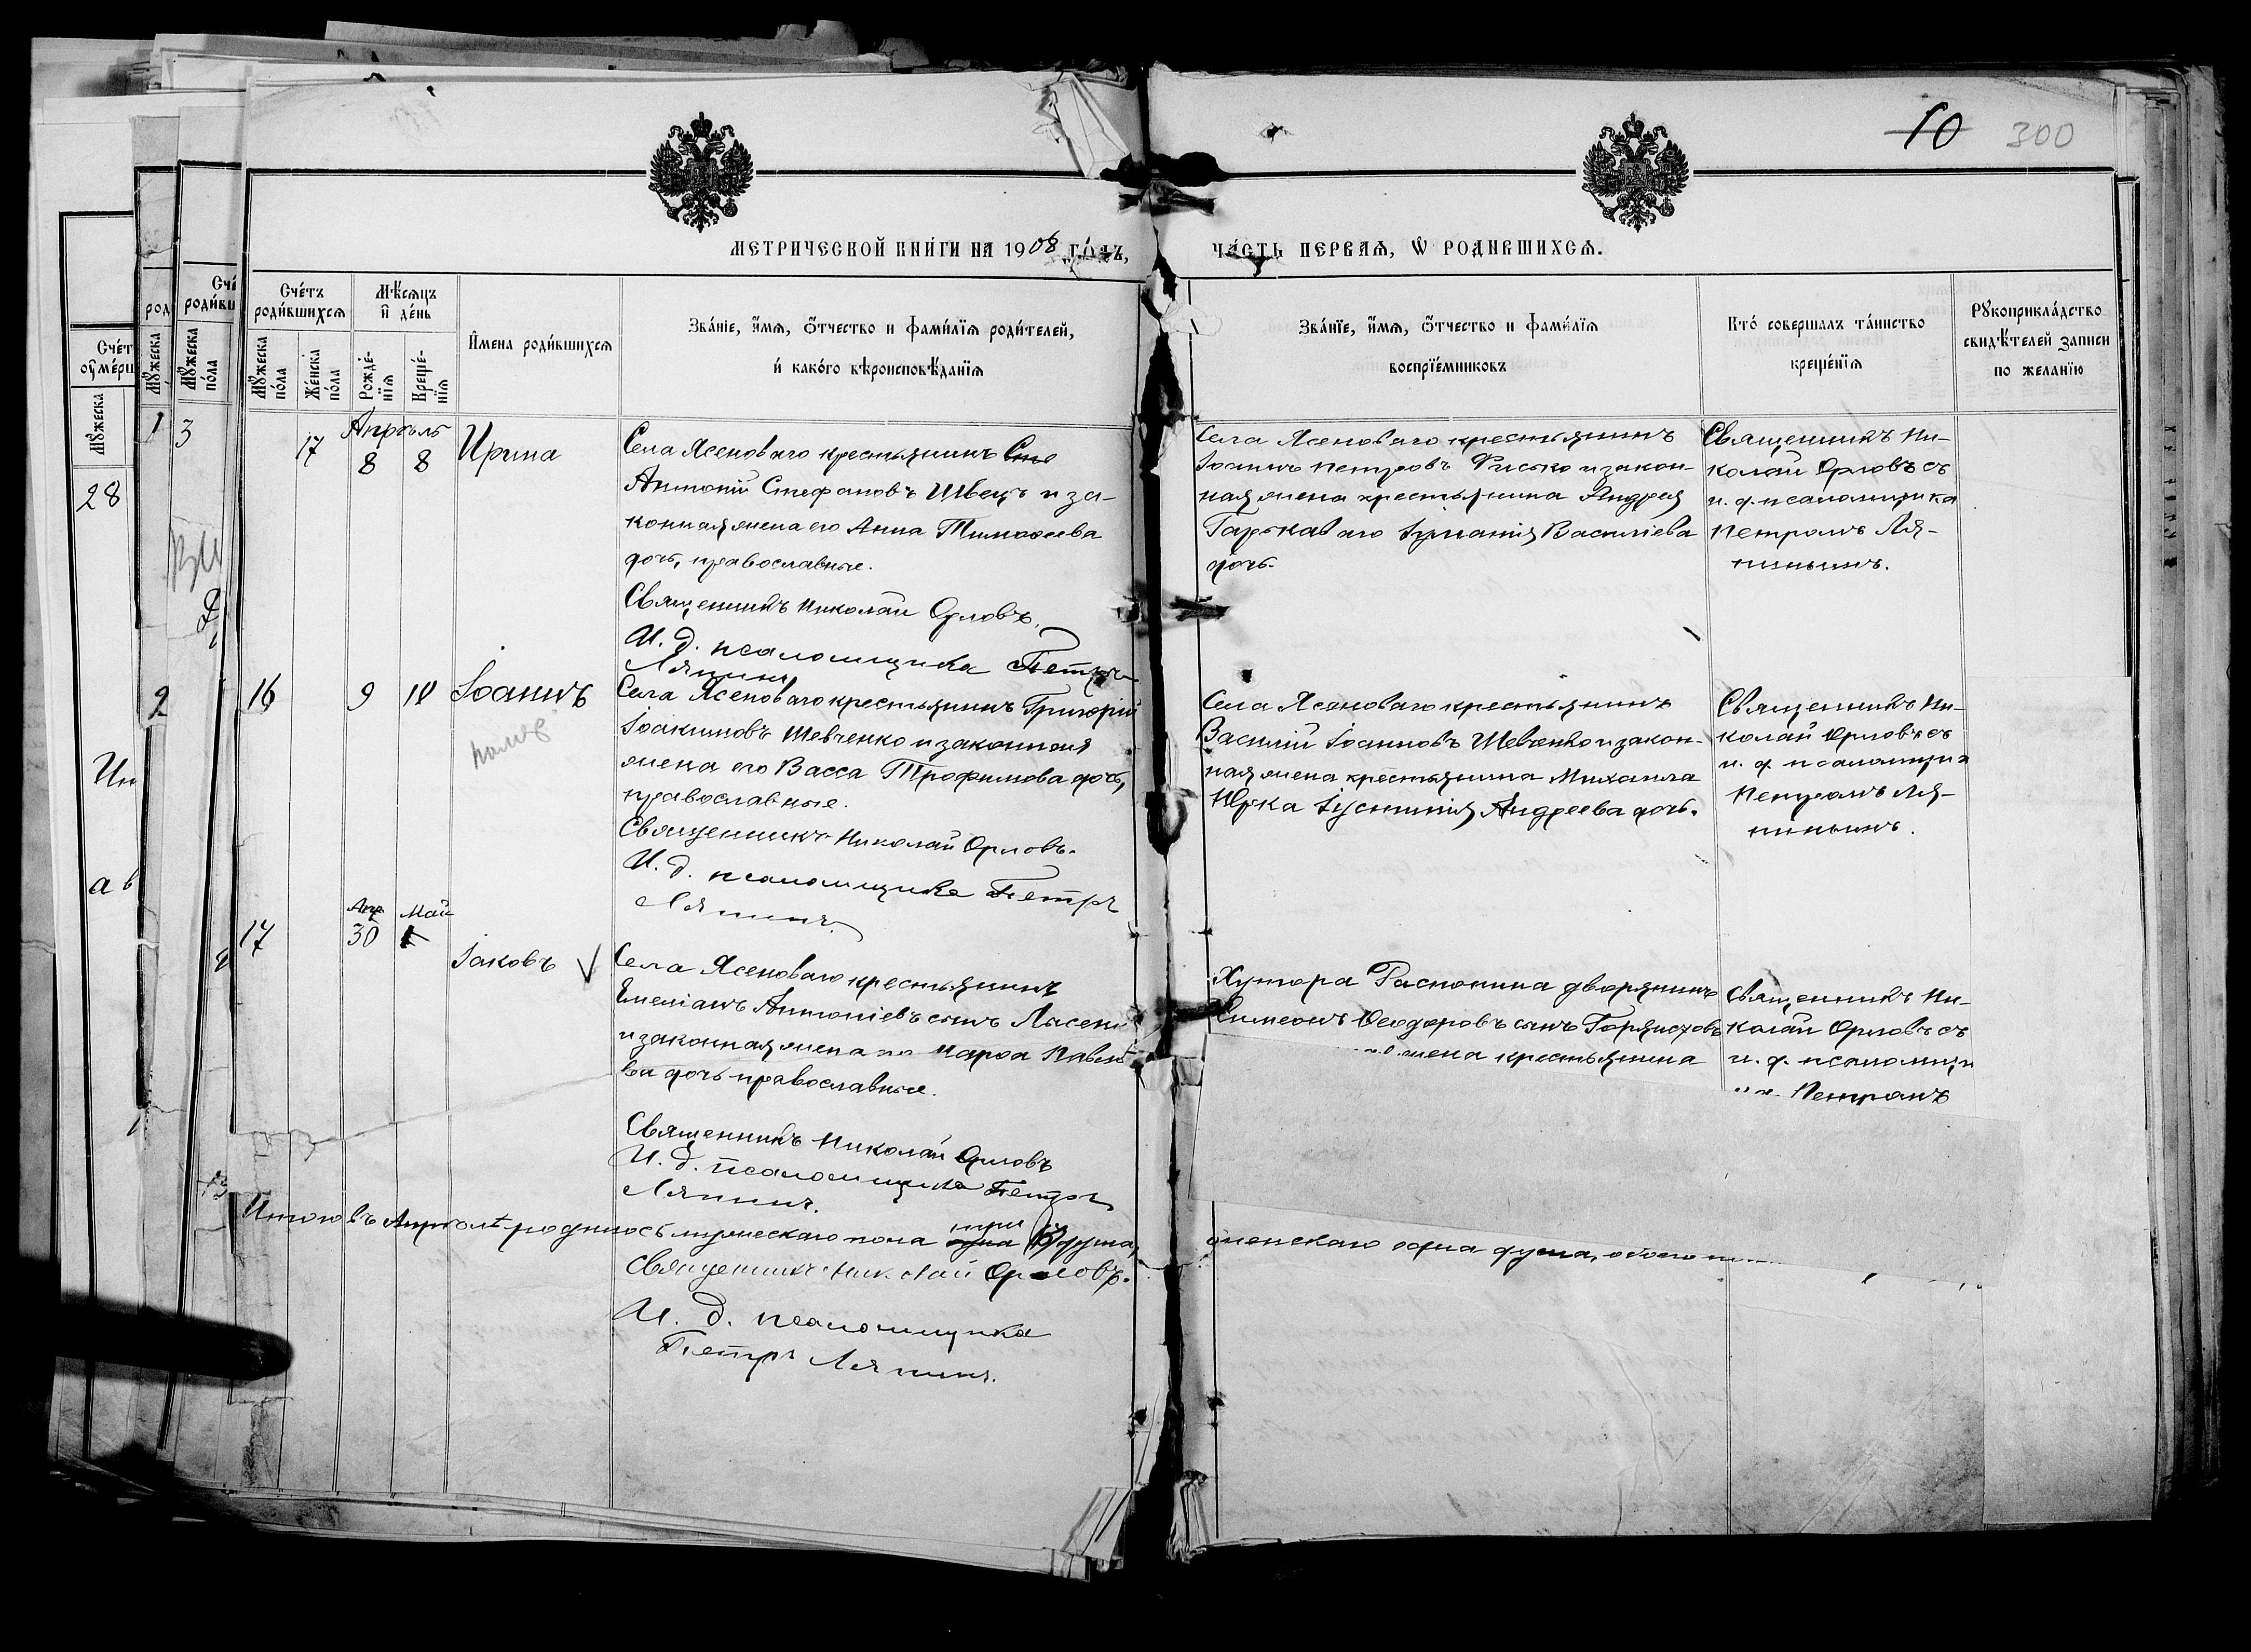 10 300
МЕТРИЧЕСКОЙ КНИ́ГИ НА 1908 ГО́ДЪ,
ЧА́СТЬ ПЕРВАЯ, Ѿ РОДИВШИХСЯ.
Сче́тъ роди́вшихся
Мѣ́сяцъ и҆ де́нь
И҆мена роди́вшихся
Зва́нїе, и҆́мя, ѻ҆́тчество и фами́лїя роди́телей,
и҆ како́го вѣроисповѣ́данїя
Мꙋ́жеска по́ла
Же́нска по́ла
Рожде́нїя
Креще́нїя
Зва́нїе, и҆́мя, ѻ҆́тчество и фами́лїя
воспрїе́мниковъ
Кто́ совершалъ та́инство
креще́нїя
Рꙋкоприкла́дство
свидѣ́телей записи
по желанїю
17
Апрѣль
8 8
Ирина
Села Ясеноваго крестьянинъ
Антоній Стефановъ Швецъ и за-
конная жена его Анна Тимоѳеева
дочь, православные.
Священникъ Николай Орловъ.
И. д. псаломщика Петръ
Ляпинъ
Села Ясеноваго крестьянинъ
Іоаннъ Петровъ Фисько и закон-
ная жена крестьянина Андрея
Гаркаваго Василіева
дочь.
Священникъ Ни-
колай Орловъ съ
и. д. псаломщика
Петромъ Ля-
пинымъ.
16
9 10
Іоаннъ
Села Ясеноваго крестьянинъ Григорій
Іоакимовъ Шевченко и законная
жена его Васса Трофимова дочь,
православные.
Священникъ Николай Орловъ.
И. д. псаломщика Петръ
Ляпинъ.
Села Ясеноваго крестьянинъ
Василій Іоанновъ Шевченко и закон-
ная жена крестьянина Михаила
Юрка Іустинія Андреева дочь.
Священникъ Ни-
колай Орловъ съ
и. д. псаломщика
Петромъ Ля-
пинымъ.
17
Апр. 30
Май 1
Іаковъ
Села Ясеноваго крестьянинъ
Емеліанъ Антоніевъ сынъ Лысен
и законная жена его Марѳа Павло
ва дочь православные.
Священникъ Николай Орловъ
И. д. псаломщика Петръ
Ляпинъ.
Хутора дворянинъ
Симеонъ Ѳеодоровъ сынъ
жена крестьянина
Священникъ Ни-
колай Орловъ съ
и. д. псаломщи
Петромъ
Итого въ Апрѣлѣ родилось мужескаго пола три (3) душа,
женскаго одна душа, обоего
Священникъ Николай Орловъ.
И. д. псаломщика
Петръ Ляпинъ.